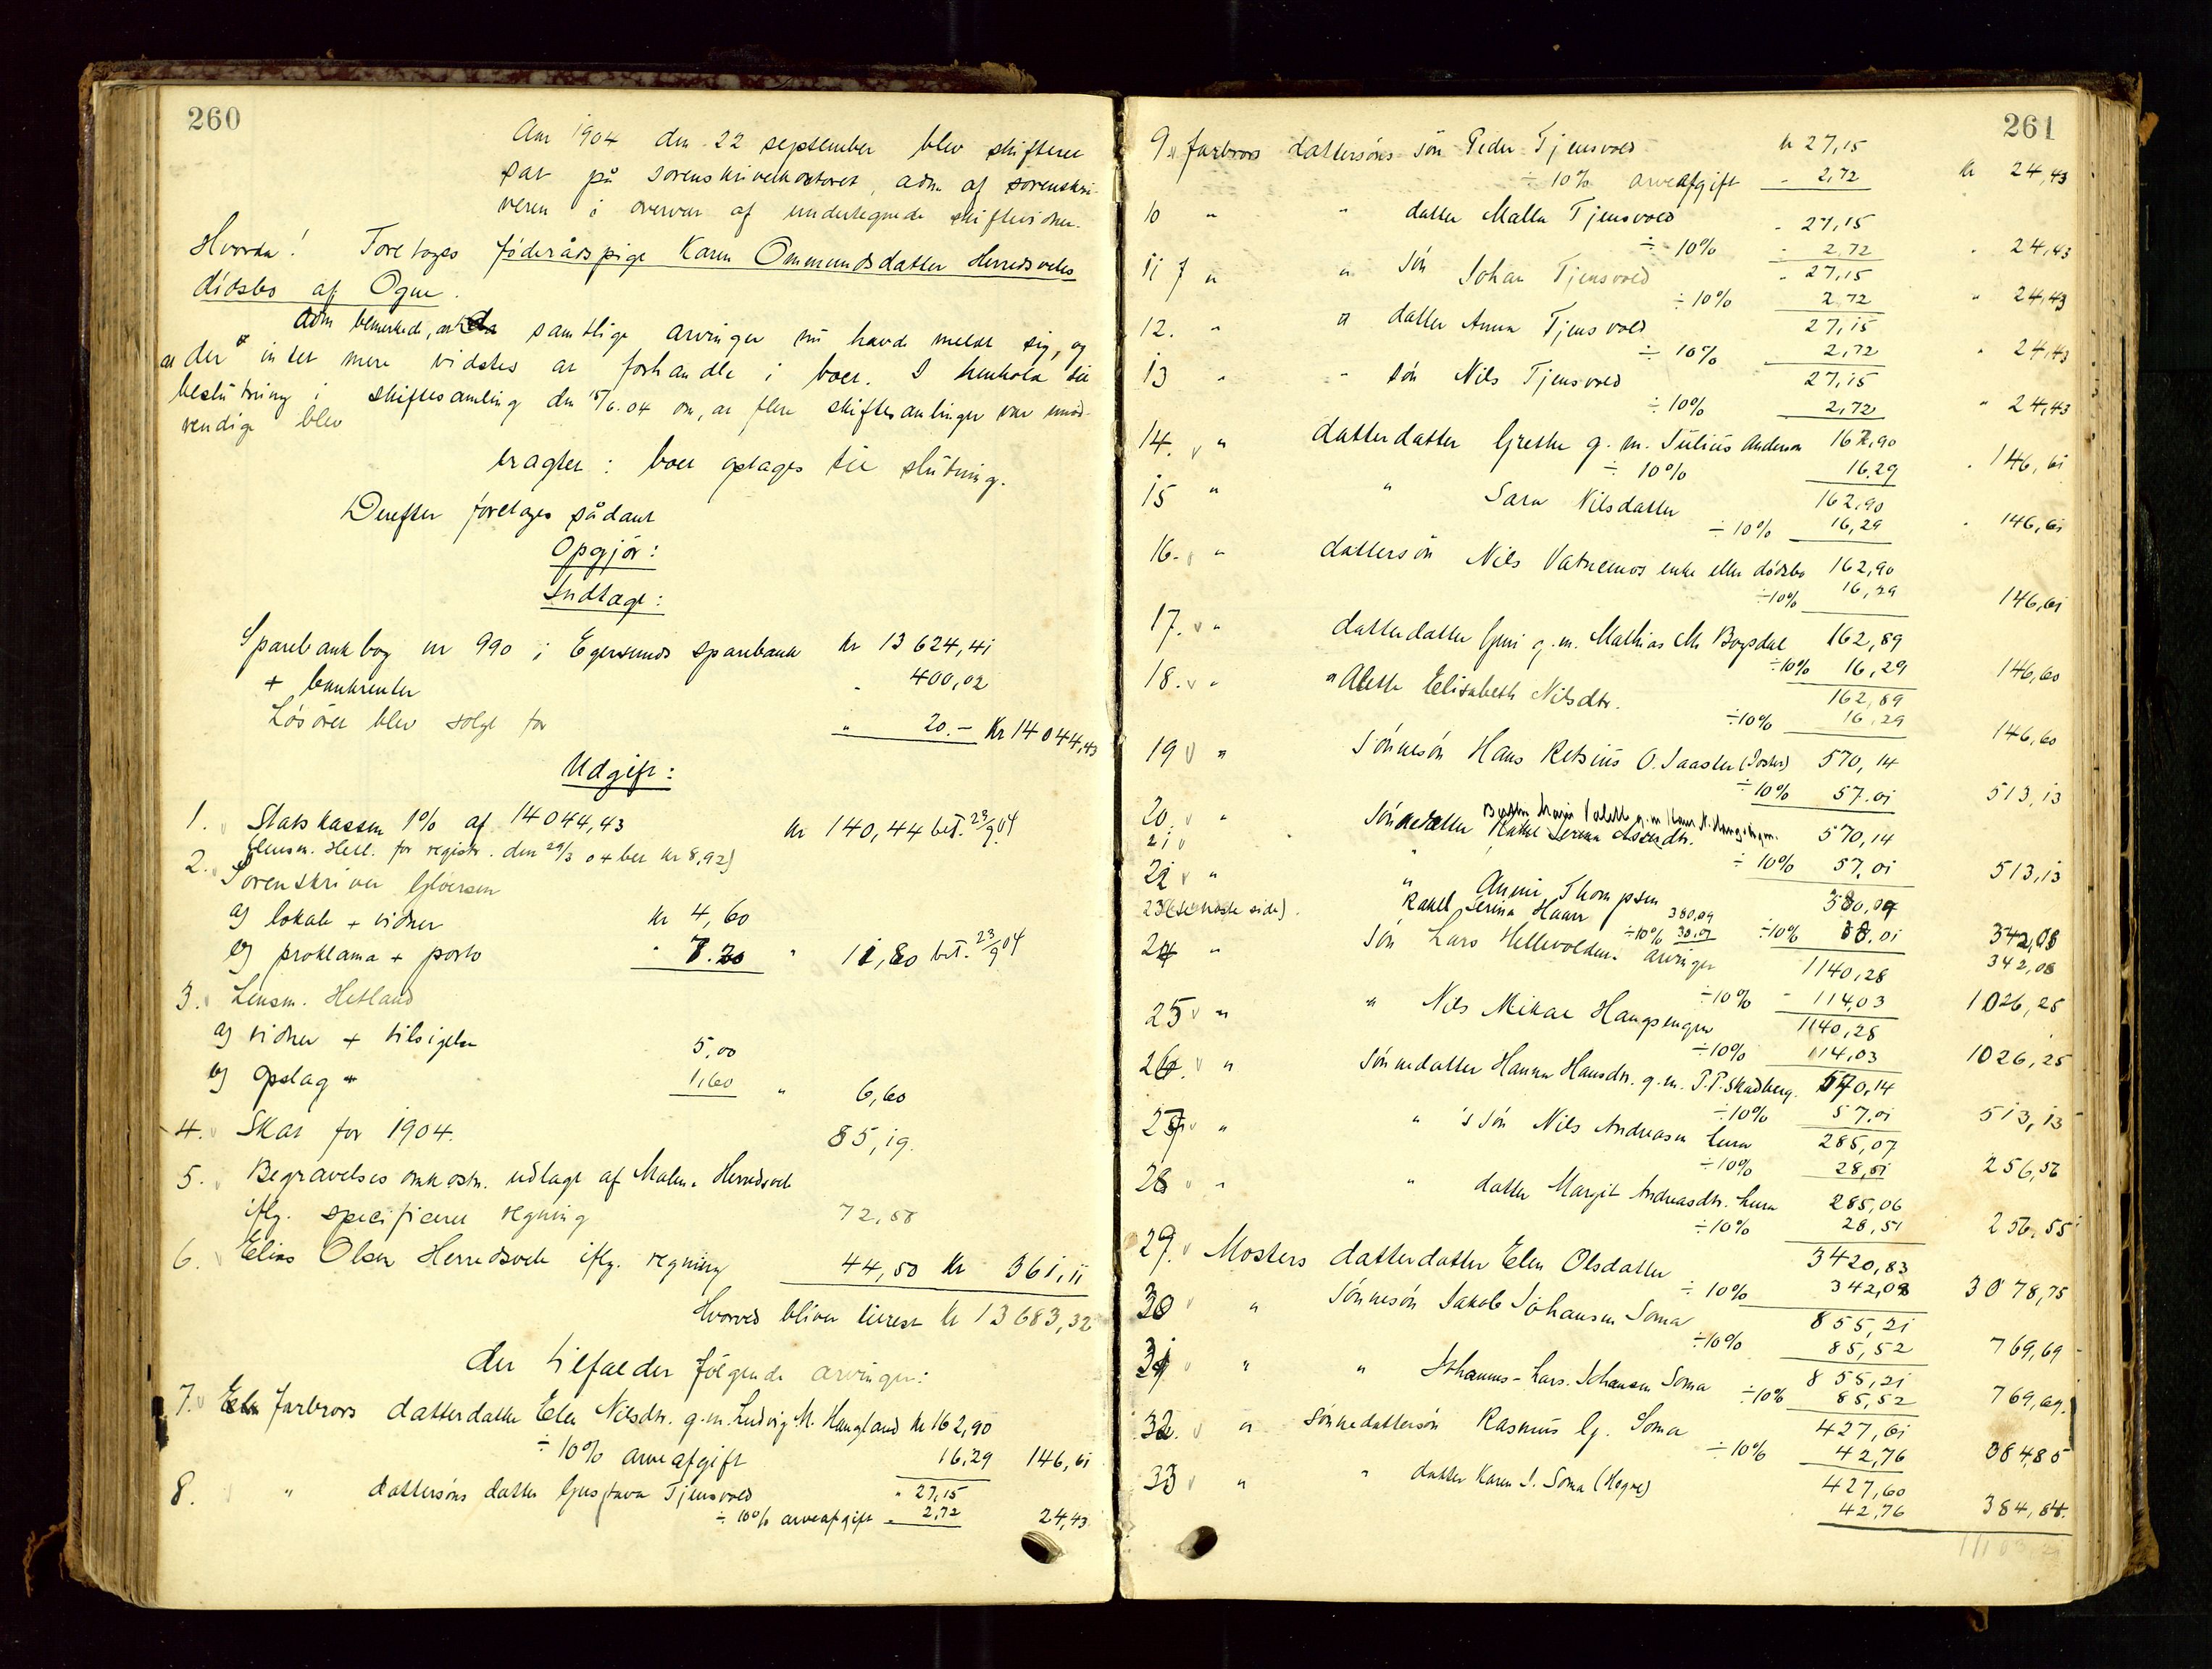 260
Aar 1904 den 22 september blev skifteret
sat på sorenskriverkontoret, adm. af sorenskri-
veren i overvær af undertegnede skiftevidner.
Hvorda! Foretoges föderådspige Karen Ommundsdatter Herredsvelas
dödsbo af Ogne.
Adm bemerkede, at samtlige arvinger nu havde meldt sig, og
at der intet mere vidstes at forhandle i boet. I henhold til
beslutning i skiftesamling den 15/6.04 om, at flere skiftesamlinger var unöd-
vendige blev
eragtet: boet optages til slutning.
Derefter foretoges sådant
Opgjör:
Indtægt:
Sparebankbog nr 990 i Egersunds sparebank kr 13 624,41
+ bankrenter " 400,02
Lösöret blev solgt for " 20.- Kr 14 044,43
Udgift:
1. Statskassen 1% af 14 044,43 kr 140,44 bet. 23/9 04
(Lensm. Hetl. for registr. den 29/3 04 bet kr 8,92)
2. Sorenskriver Gjöersen
a) lokale + vidner kr 4,60
b) proklama + porto " 7.20 " 11,80 bet. 23/9 04
3. Lensm. Hetland
a) vidner + tilsigelse 5,00
b) opslag 1,60 " 6,60
4. Skat for 1904. 85,19.
5. Begravelses omkostn. udlagt af Malene Herredsvel
iflg. specificeret regning 72,58
6. Elias Olsen Herredsvele iflg. regning 44,50 Kr 361,11
Hvorved bliver tilrest kr 13 683,32
der tilfalder fölgende arvinger:
7. Farbrors datterdatter Elen Nilsdtr. g.m. Ludvig M. Haugland kr 162,90
÷ 10% arveafgift 16,29 146,61
8. " dattersöns datter Gustava Tjensvold " 27,15
÷ 10% arveafgift " 2,72 24,43
261
9. farbrors dattersöns sön Peder Tjensvold kr 27,15
÷ 10% arveafgift " 2,72 kr 24,43
10 " " datter Malla Tjensvold " 27,15
÷ 10% " 2,72 " 24,43
11 " " sön Johan Tjensvold " 27,15
÷ 10% 2,72 " 24,43
12. " " datter Anna Tjensvold 27,15
÷ 10% 2,72 " 24,43
13 " " sön Nils Tjensvold 27,15
÷ 10% 2,72 " 24,43
14. " datterdatter Grethe g. m. Julius Anderson 162,90
÷ 10% 16,29 " 146,61
15 " " Sara Nilsdatter 162,90
÷ 10% 16,29 " 146,61
16. " dattersön Nils Vatnemos enke eller dödsbo 162,90
÷10% 16,29 146,61
17. " datterdatter Guri g.m. Mathias M Bogsdal 162,89
÷10% 16,29 146,60
18. " " Aleth Elisabeth Nilsdtr. 162,89
÷10% 16,29 146,60
19 " Sönnesön Hans Retsius O. Saaster (Joster) 570,14
÷ 10% 57.01 513,13
20. " Sönnedatter 570,14
21 ÷ 10% 57,01 513,13
22 " " Annie Thompsen 380,09
23 (se neste side). Rakel Serina Haarr 380,09
÷10% 38,01 ÷10% 38.01 342,08
342,08
24 " Sön Lars Hellevolden's arvinger 1140,28
÷10% " 114,03 1026,25
25 " " Nils Mikal Haugsengen 1140,28
÷10% 114,03 1026,25
26. " Sönnedatter Hanna Hansdtr. g.m. P.P. Skadberg. 570,14
÷10% 57.01 513,13
27 " " 's sön Nils Andreasen Lura 285,07
÷10% 28,51 256,56
28 " " datter Margit Andreasdtr. Lura 285,06
÷10% 28,51 256,55
29. Mosters datterdatter Elen Olsdatter 3420,83
÷ 10% 342,08 3078,75
30 " Sönnesön Jakob Johansen Soma 855,21
÷10% 85,52 769,69
31 " " Johannes-Lars. Johansen Soma 855,21
÷10% 85,52 769,69.
32. " Sönnedattersön Rasmus G. Soma 427,61
÷10% 42,76 384,85
33 " " datter Karen J. Soma (Hogre) 427,60
42,76 384,84.